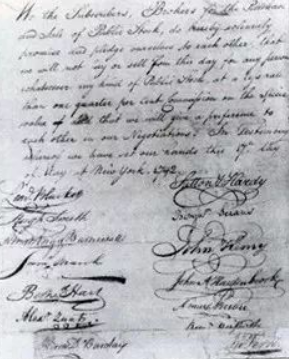 We the Subscribers, Brokers for the Purchase
and Sale of Public Stock, do hereby solemnly
promise and pledge ourselves to each other, that
we will not buy or sell from this day for any person
whatsoever any kind of Public Stock, at a less rate
than one quarter per Cent Commission on the Specie
value of and that we will give a preference to
each other in our Negotiations. In Testimony
whereof we have set our hands this 17th day
of May at New York. 1792
Sutton & Hardy
Hugh Smith
Armstrong & Barnewall
John Henry
Samuel March
John A Hardenbrook
Bernard Hart
Alex Zuntz